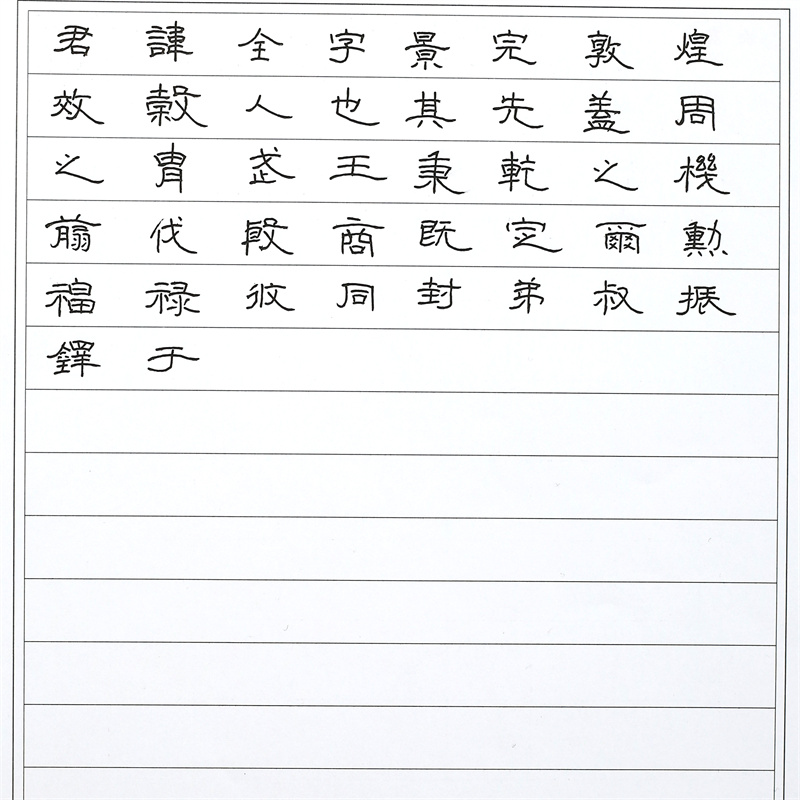 君諱全字景完敦煌
效穀人也其先蓋周
之胄武王秉乾之機
翦伐殷商既定爾勲
福禄攸同封弟叔振
鐸于